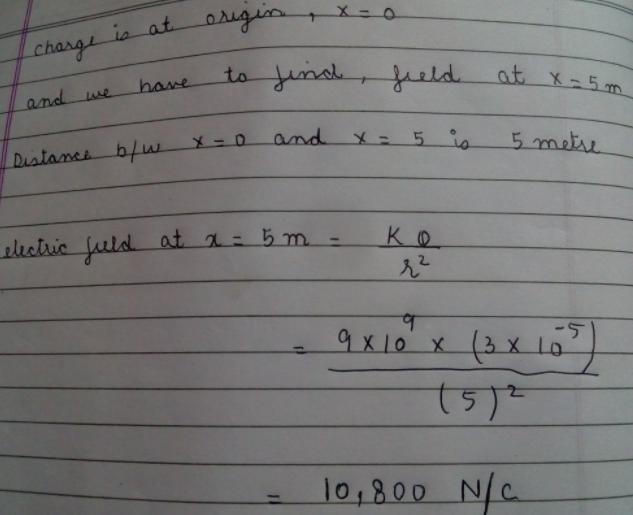 charge is at origin, x = 0
and we have to find, field at x = 5 m
Distance b/w x = 0 and x = 5 is 5 metre
electric field at x = 5 m = KQ / r²
= 9 × 10⁹ × (3 × 10⁻⁵) / (5)²
= 10,800 N/C